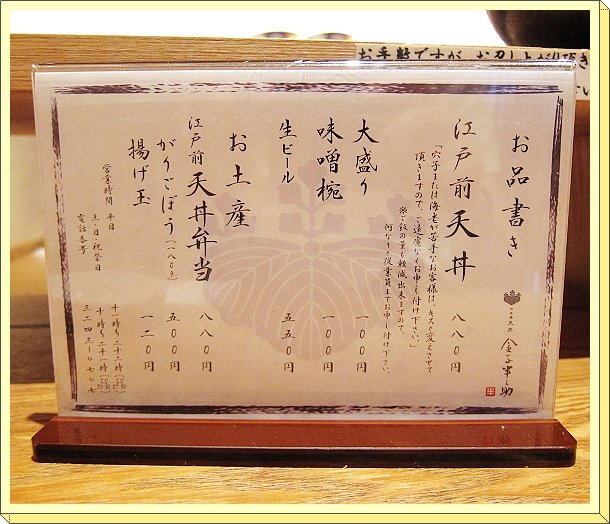 お手数ですが、お召し上がり頂き
お品書き
金子半之助
江戸前天丼 八八〇円
「穴子または海老が苦手なお客様は、キスに変えさせて
頂きますので、ご遠慮なくお申し付け下さい。」
※ご飯の量も軽減出来ますので、
何なりと従業員までお申し付け下さい。
大盛り 一〇〇円
味噌椀 一〇〇円
生ビール 五五〇円
お土産
江戸前天丼弁当 八八〇円
がりごぼう(一八〇g) 五〇〇円
揚げ玉 一二〇円
営業時間 平日 十一時〜二十二時
土・日・祝祭日 十時〜二十一時
電話番号 三二四三-〇七〇七